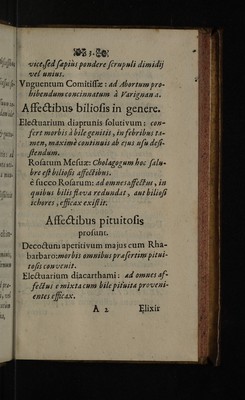 3.
vice, sed sæpius pondere scrupuli dimidij
vel unius.
Vnguentum Comitissæ: ad Abortum pro-
hibendum concinnatum à Varignana.
Affectibus biliosis in genere.
Electuarium diaprunis solutivum: con-
fert morbis à bile genitis, in febribus ta-
men, maximè continuis ab ejus usu desi-
stendum.
Rosatum Mesuæ: Cholagogum hoc salu-
bre est biliosis affectibus.
è succo Rosarum: ad omnes affectus, in
quibus bilis flava redundat, aut biliosi
ichores, efficax existit.
Affectibus pituitosis
prosunt.
Decoctum aperitivum majus cum Rha-
barbaro: morbis omnibus præsertim pitui-
tosis convenit.
Electuarium diacarthami: ad omnes af-
fectus è mixta cum bile pituita proveni-
entes efficax.
A 2 Elixir